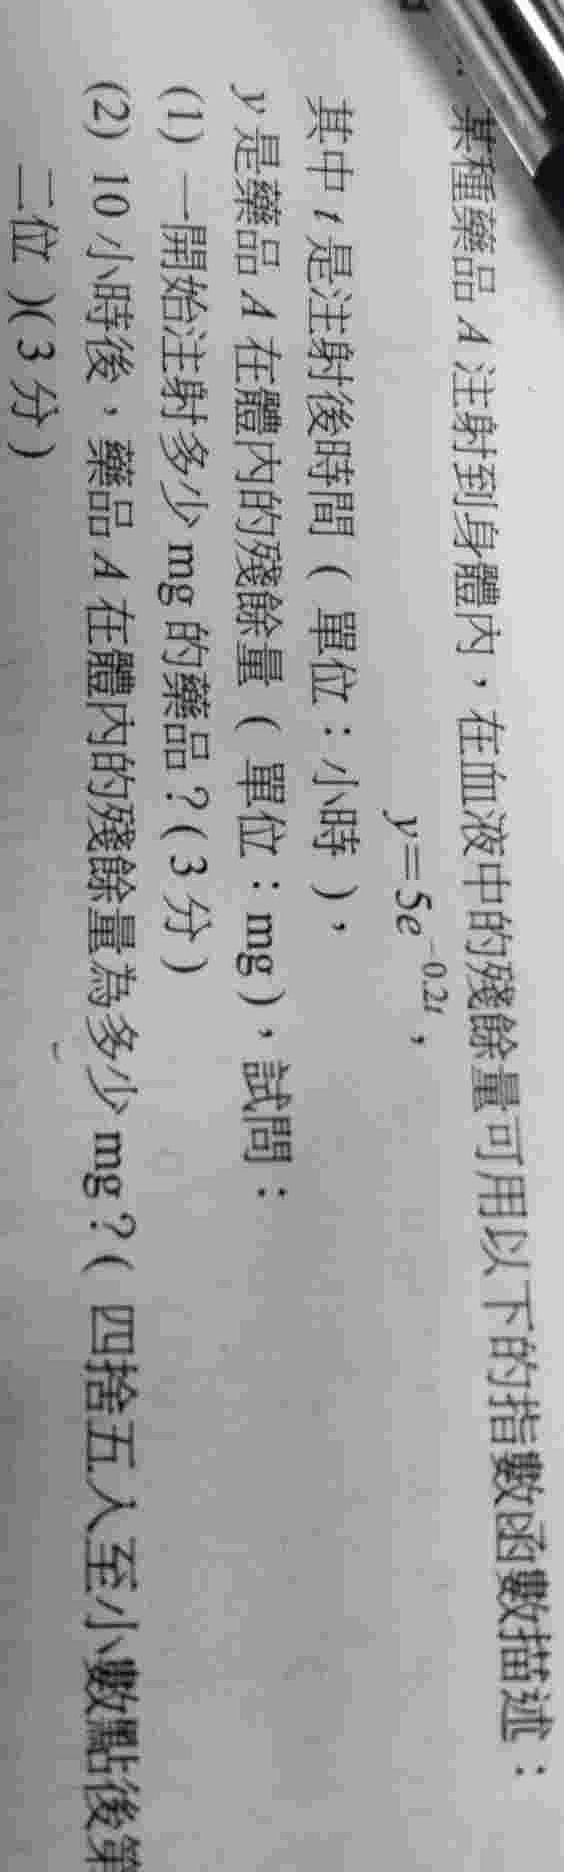 某種藥品 A 注射到身體內，在血液中的殘餘量可用以下的指數函數描述：
y=5e^{-0.2t}，
其中 t 是注射後時間（單位：小時），
y 是藥品 A 在體內的殘餘量（單位：mg），試問：
(1) 一開始注射多少 mg 的藥品？(3 分)
(2) 10 小時後，藥品 A 在體內的殘餘量為多少 mg？(四捨五入至小數點後第
二位)(3 分)